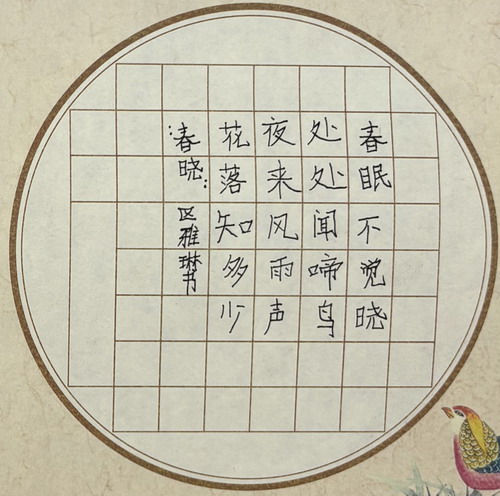 春眠不觉晓
处处闻啼鸟
夜来风雨声
花落知多少
:春晓: 区雅琳书